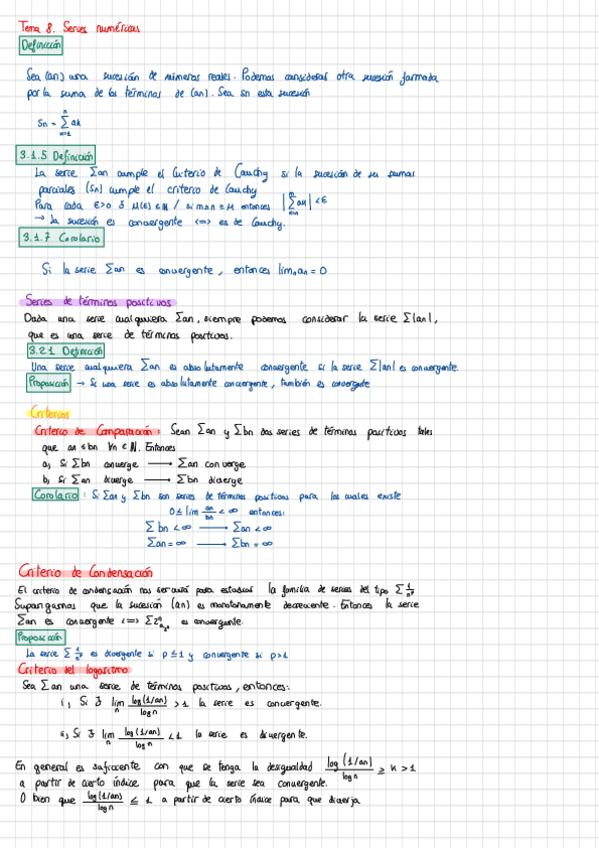 Tema 8. Series numéricas
Definición
Sea (an) una sucesión de números reales. Podemos considerar otra sucesión formada
por la suma de los términos de (an). Sea sn esta sucesión
Sn = Σ ak
3.1.5 Definición
La serie Σan cumple el Criterio de Cauchy si la sucesión de su sumas
parciales (Sn) cumple el criterio de Cauchy
Para cada ε>0 ∃ M(ε) ∈ N / si m≥n≥M entonces |Σ ak| < ε
→ la sucesión es convergente <=> es de Cauchy.
3.1.7 Corolario
Si la serie Σan es convergente, entonces limn an = 0
Series de términos positivos
Dada una serie cualquiera Σan, siempre podemos considerar la serie Σ|an|,
que es una serie de términos positivos.
3.2.1 Definición
Una serie cualquiera Σan es absolutamente convergente si la serie Σ|an| es convergente.
Proposición → Si una serie es absolutamente convergente, también es convergente
Criterios
Criterio de Comparación: Sean Σan y Σbn dos series de términos positivos tales
que an ≤ bn ∀n ∈ N. Entonces
a) Si Σbn converge → Σan converge
b) Si Σan diverge → Σbn diverge
Corolario: Si Σan y Σbn son series de términos positivos para los cuales existe
0 ≤ lim an/bn < ∞ entonces:
Σbn < ∞ → Σan < ∞
Σan = ∞ → Σbn = ∞
Criterio de Condensación
El criterio de condensación nos servirá para estudiar la familia de series del tipo Σ 1/n^p
Supongamos que la sucesión (an) es monótonamente decreciente. Entonces la serie
Σan es convergente <=> Σ2^n a_2^n es convergente.
Proposición
La serie Σ 1/n^p es divergente si p ≤ 1 y convergente si p>1
Criterio del logaritmo
Sea Σan una serie de términos positivos, entonces:
i) Si ∃ lim n log(1/an)/log n > 1 la serie es convergente.
ii) Si ∃ lim n log(1/an)/log n < 1 la serie es divergente.
En general es suficiente con que se tenga la desigualdad log(1/an)/log n ≥ k > 1
a partir de cierto índice para que la serie sea convergente.
O bien que log(1/an)/log n ≤ 1 a partir de cierto índice para que diverja